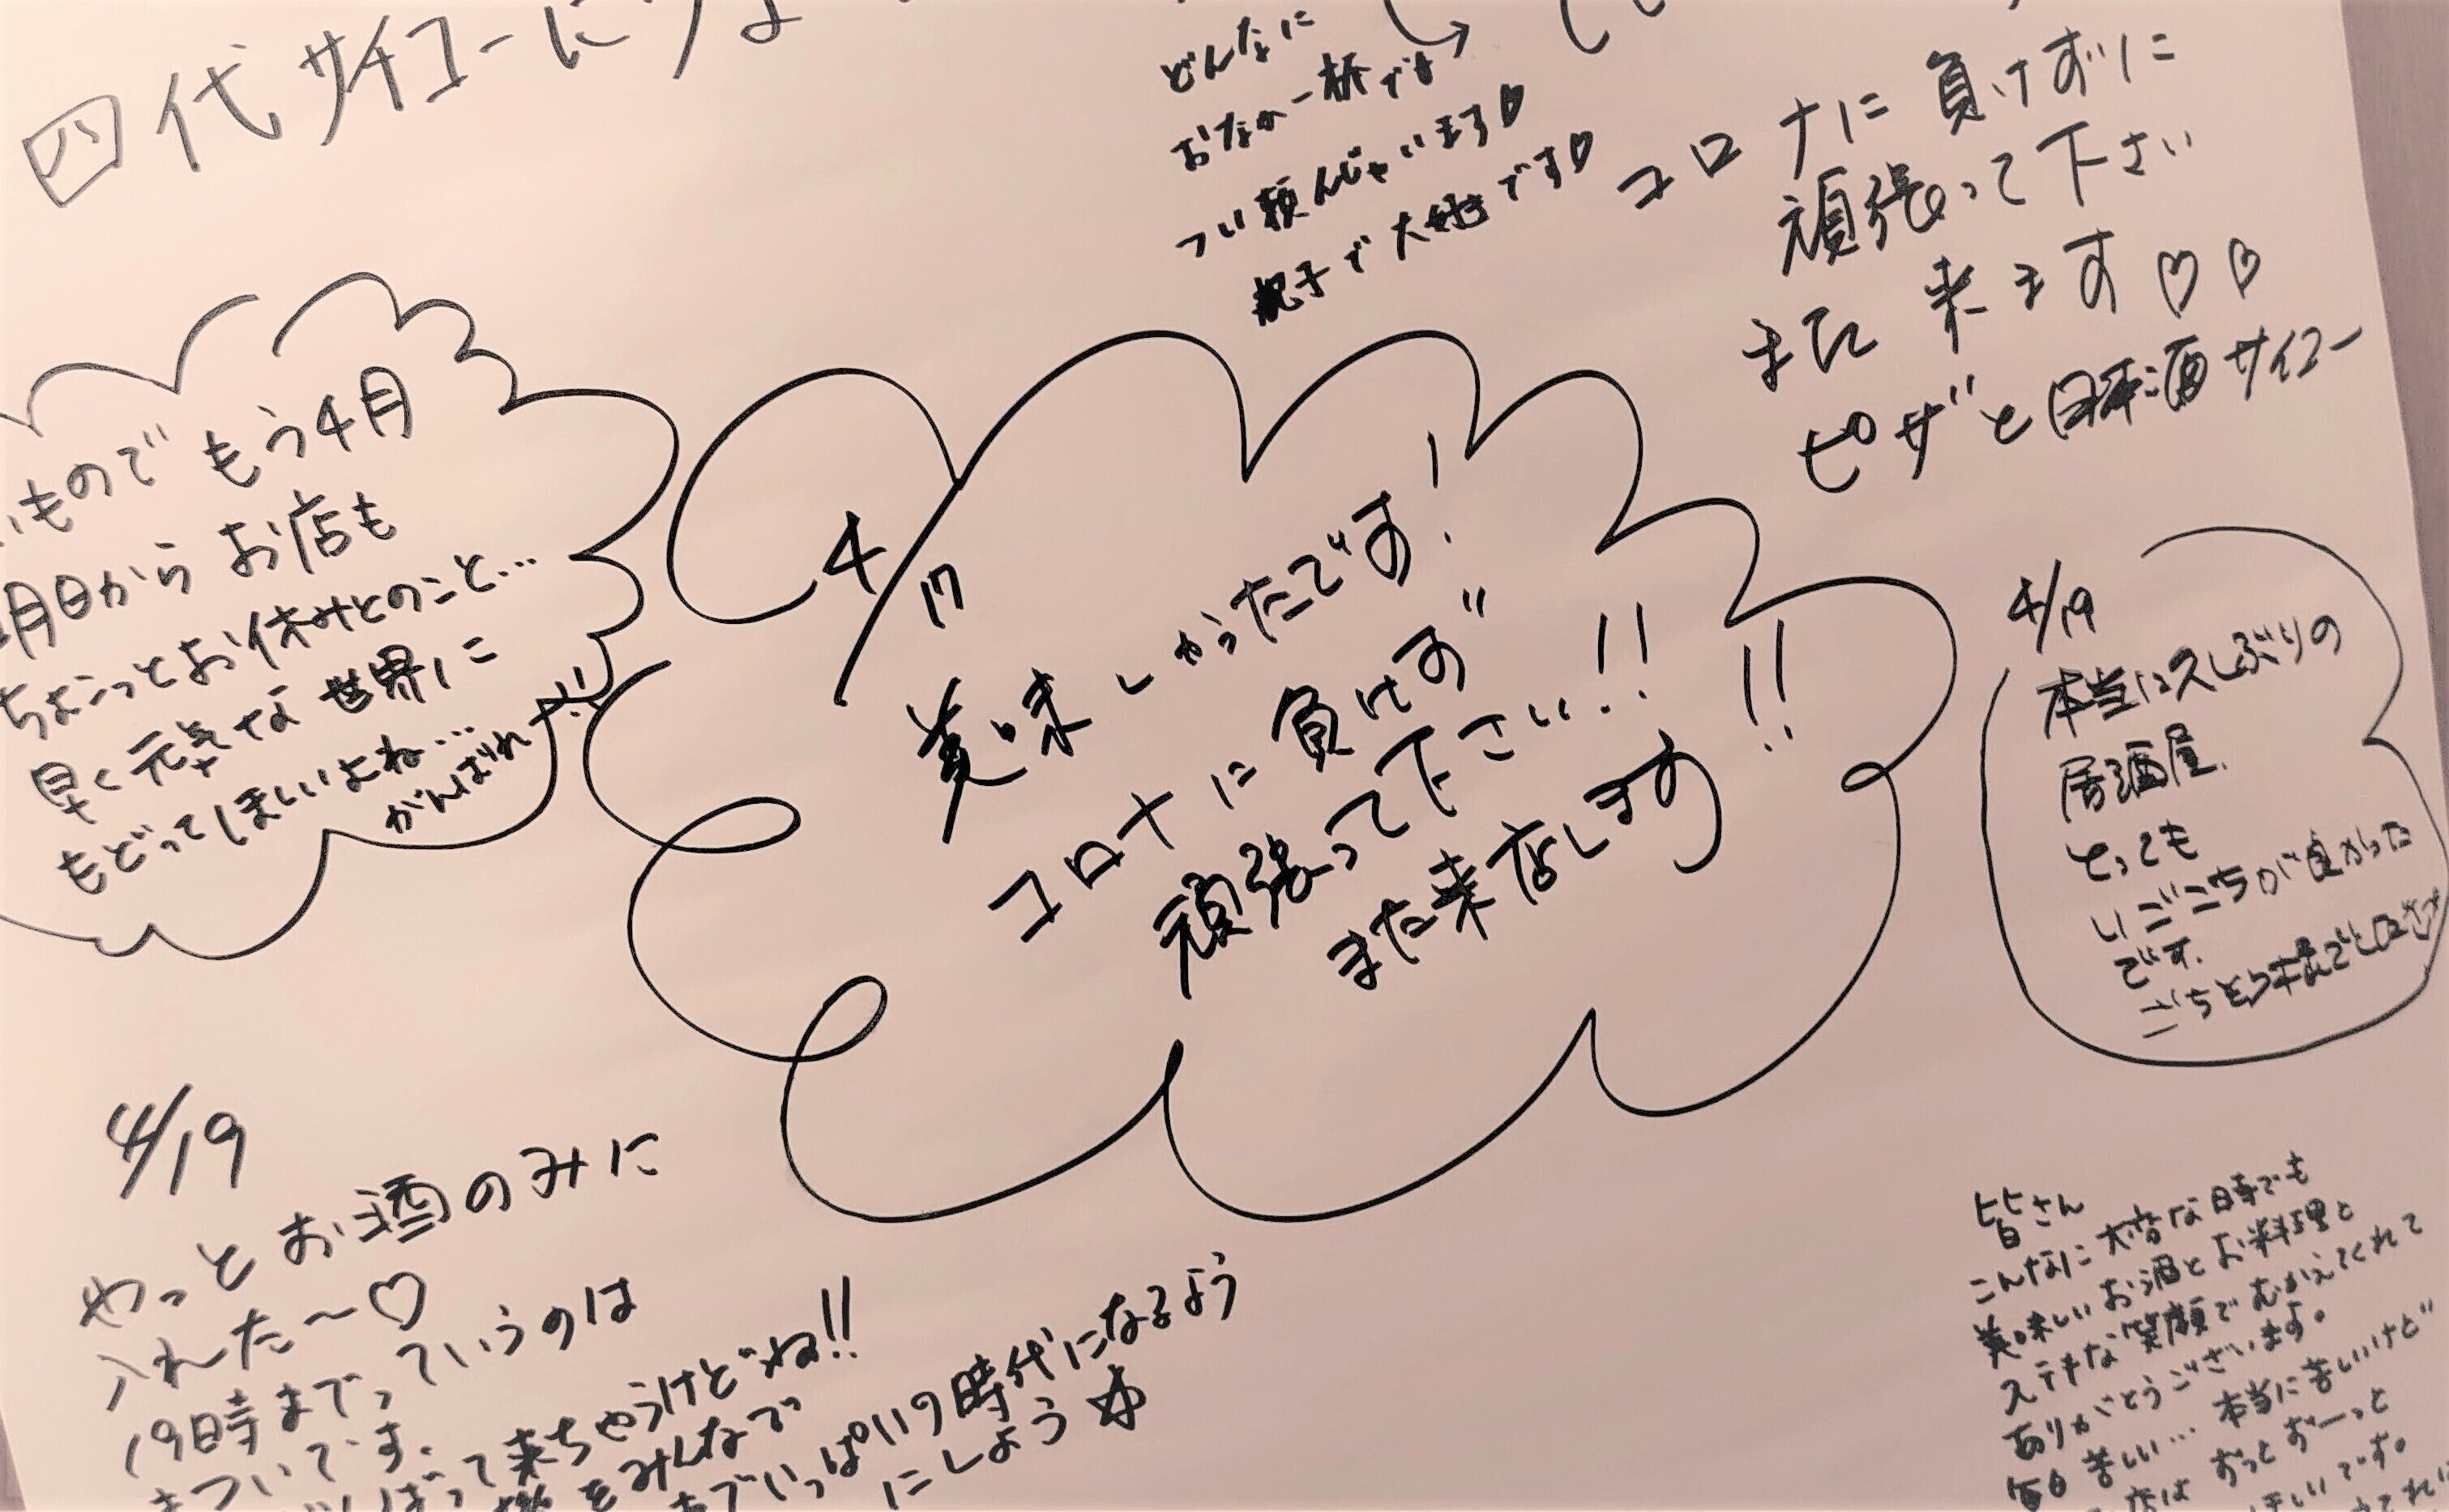 四代サイコーに
どんなに
おなか一杯でも
つい頼んじゃいます♡
親子で大好きです♡
コロナに負けずに
頑張って下さい
また来ます♡♡
ピザと日本酒サイコー
ものでもう4月
月日からお店も
ちょこっとお休みとのこと…
早く元気な世界に
もどってほしいよね…
がんばれー!!
4/17
美味しかったです!
コロナに負けず
頑張って下さい!!
また来店します!!
4/19
本当に久しぶりの
居酒屋、
とっても
いごこちが良かった
です。
ごちそう様でした
4/19
やっとお酒のみに
入れた〜♡
19時までっていうのは
きついです。
ばって来ちゃうけどね!!
をみんなで
でいっぱいの時代になるよう
にしよう☆
皆さん
こんなに大変な時でも
美味しいお酒とお料理と
ステキな笑顔でむかえてくれて
ありがとうございます。
毎日苦しい…本当に苦しいけど
店はずっとずーっと
ほしいです。